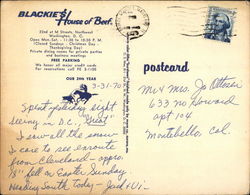 BLACKIE'S
House of Beef.
22nd at M Streets, Northwest
Washington, D. C.
Open Mon.-Sat. - 11:00 to 10:30 P. M.
(Closed Sundays - Christmas Day -
Thanksgiving Day)
Private dining rooms for private parties
and business meetings.
FREE PARKING
We honor all major credit cards
For reservations call FE 3-1100
OUR 24th YEAR
3-31-70
Spent yesterday sight
seeing in D.C. "Great"
I saw all the snow
I care to see enroute
from Cleveland - appro.
18" fell on Easter Sunday
Heading South today - Jack & Vi -
postcard
Mr & Mrs. Jo Ottosen
633 no Howard
apt 104
Montebello, Cal.